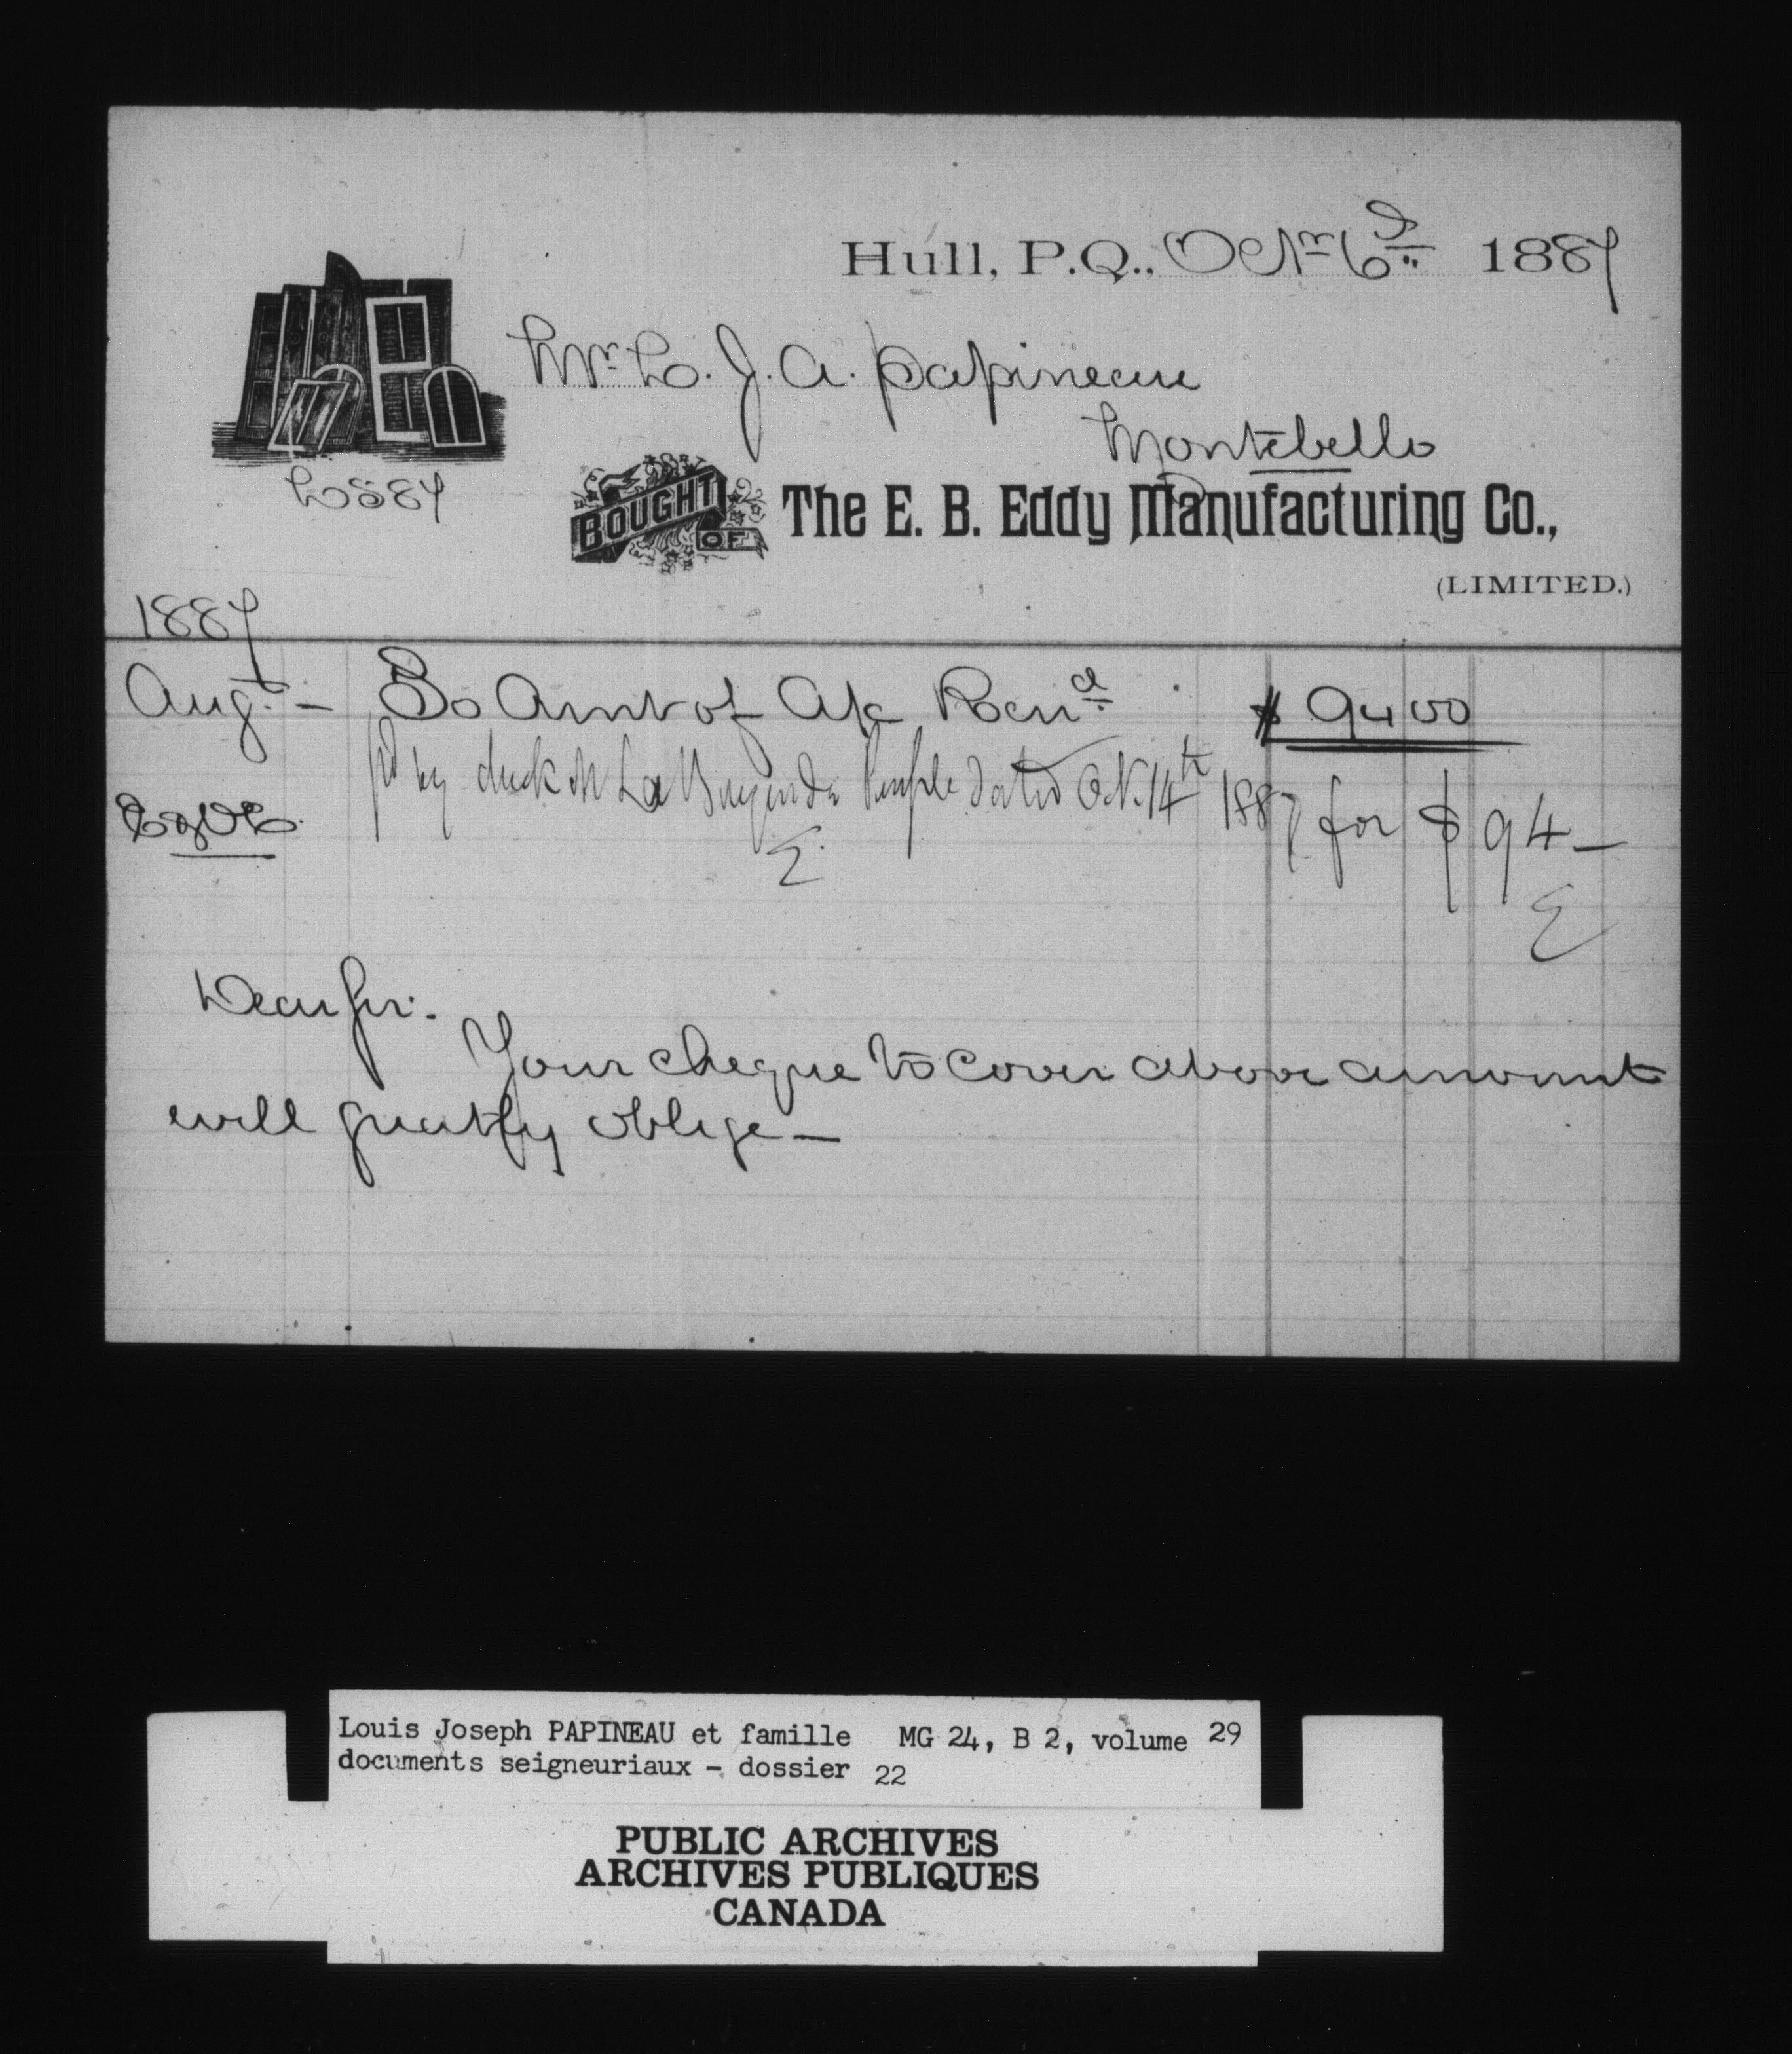 Hull, P.Q., Octr 6th 1887
Mr L. J. A. Papineau
Montebello
L587
BOUGHT OF The E. B. Eddy Manufacturing Co.,
(LIMITED.)
1887
Augt - To Amt of A/c Rend $ 94 00
pd by check on La Banque du Peuple dated Oct. 14th 1887 for $ 94 -
E. & O. E.
Dear Sir. -
Your cheque to cover above amount
will greatly oblige -
Louis Joseph PAPINEAU et famille MG 24, B 2, volume 29
documents seigneuriaux - dossier 22
PUBLIC ARCHIVES
ARCHIVES PUBLIQUES
CANADA